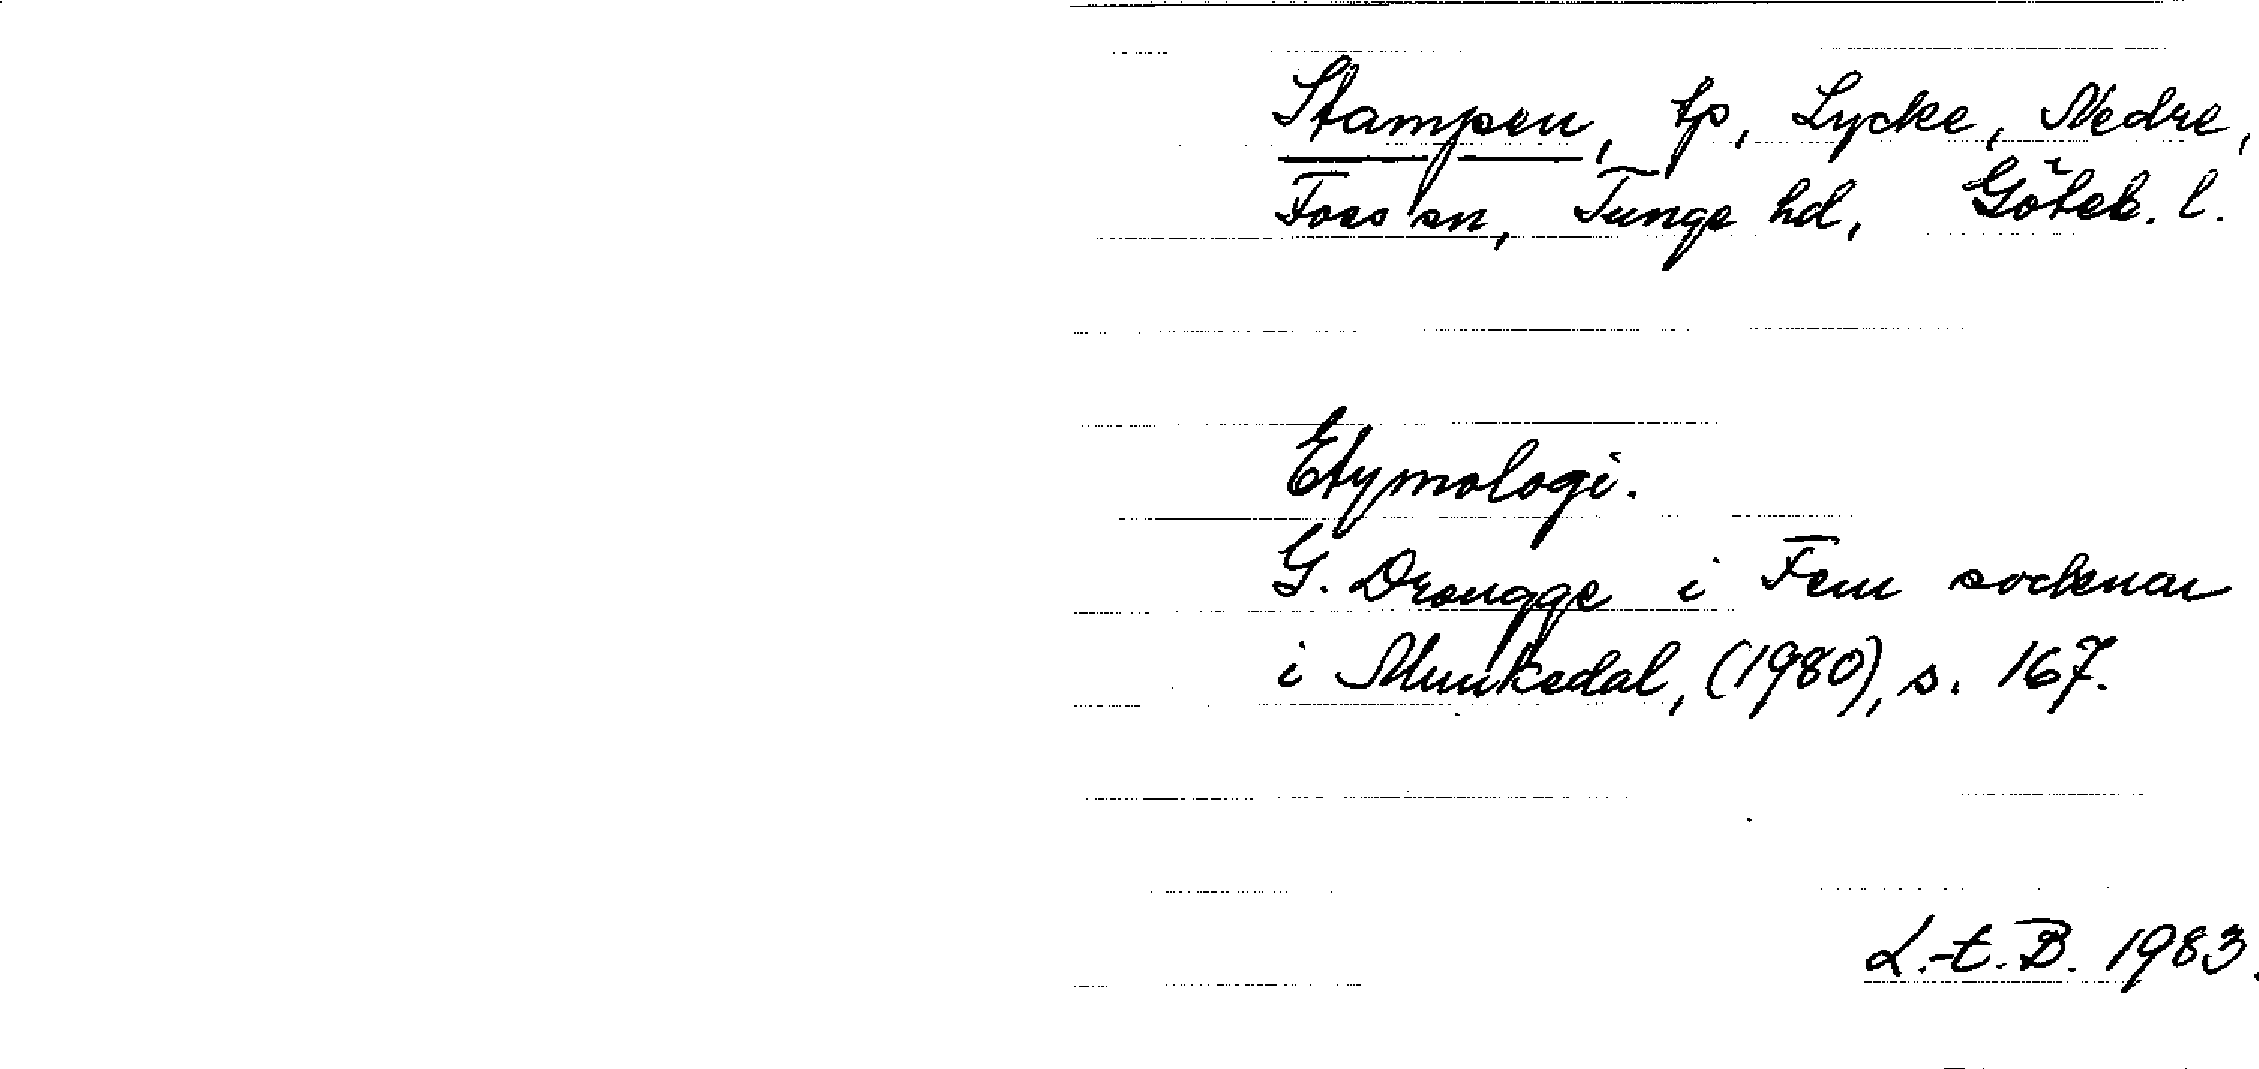 Stampen, tp, Lycke, Nedre,
Foss sn, Tunge hd, Göteb. l.
Etymologi.
G. Drougge i Fem socknar
i Munkedal, (1980), s. 167.
L.-t. B. 1983.